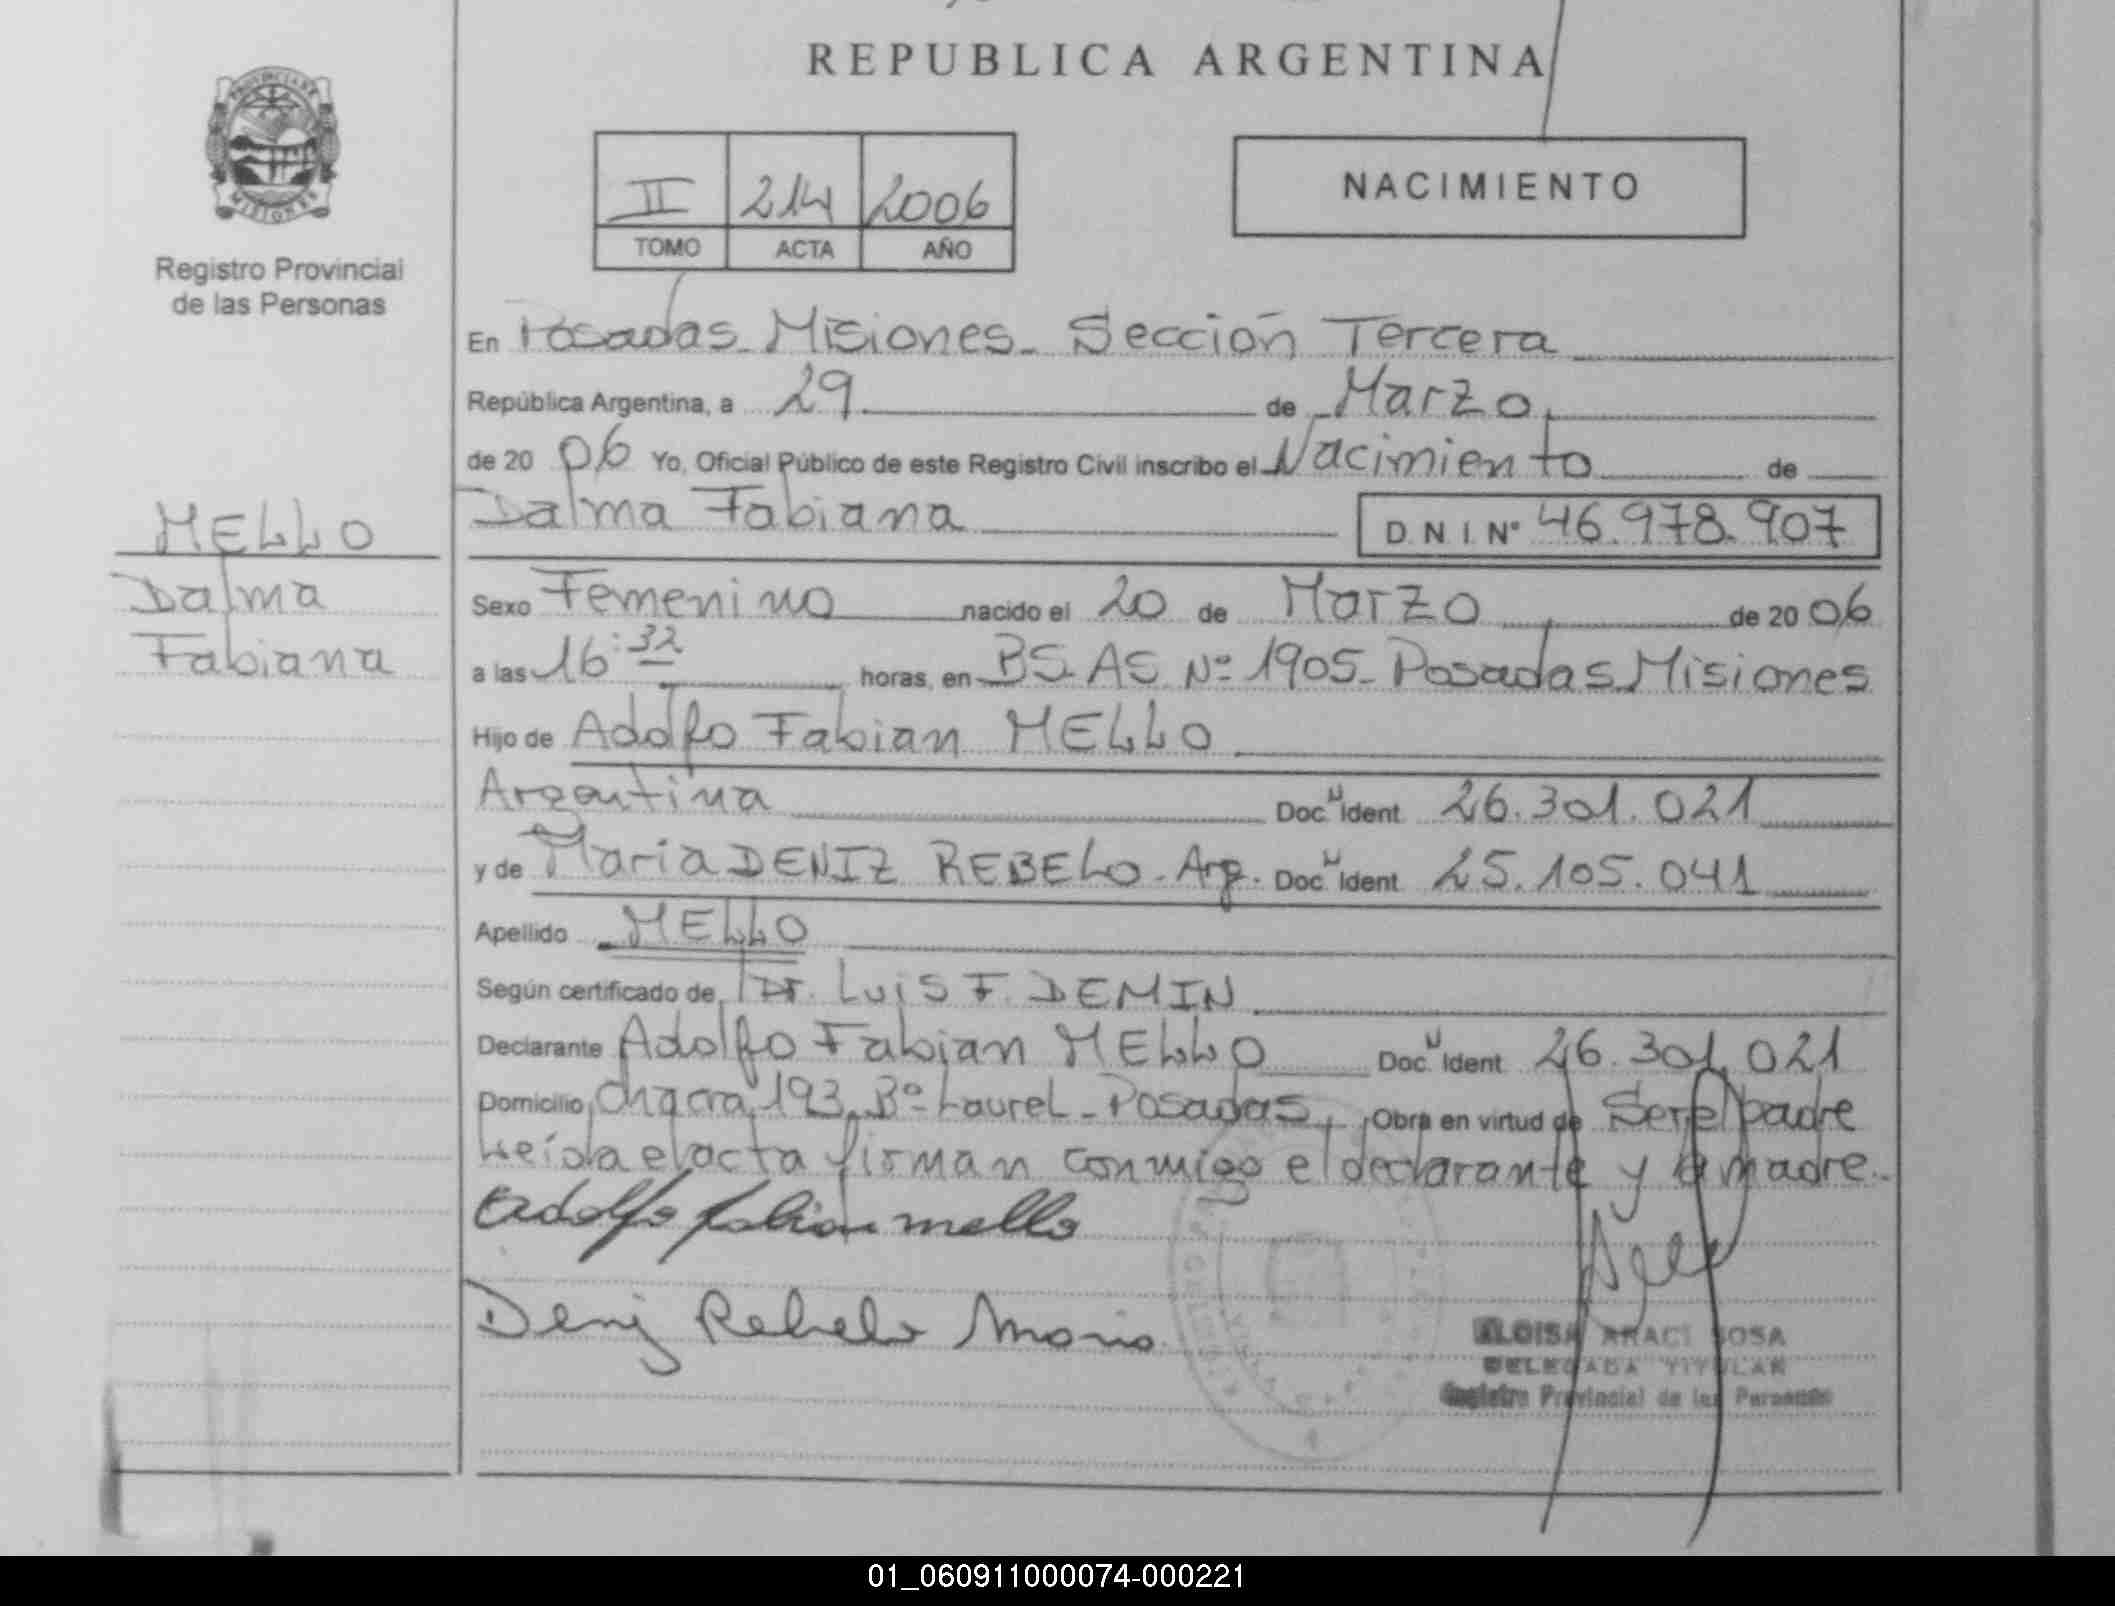 REPUBLICA ARGENTINA
PROVINCIA DE
MISIONES
Registro Provincial
de las Personas
II 214 2006
TOMO ACTA AÑO
NACIMIENTO
En Posadas Misiones Sección Tercera
República Argentina, a 29 de Marzo
de 20 06 Yo, Oficial Público de este Registro Civil inscribo el Nacimiento de
Dalma Fabiana D.N.I. Nº 46.978.907
MELLO
Dalma
Fabiana
Sexo Femenino nacido el 20 de Marzo de 20 06
a las 16:32 horas, en BS. AS Nº 1905 - Posadas Misiones
Hijo de Adolfo Fabian MELLO
Argentina Doc. Ident. 26.301.021
y de Maria DENIZ REBELO - Arg. Doc. Ident. 25.105.041
Apellido MELLO
Según certificado de Dr. Luis F. DEMIN
Declarante Adolfo Fabian MELLO Doc. Ident. 26.301.021
Domicilio Chacra 193, Bº Laurel - Posadas Obra en virtud de Ser el padre
Leída el acta firman conmigo el declarante y la madre.
Adolfo fabian mello
Deniz Rebelo Maria
ELOISA ARACI SOSA
DELEGADA TITULAR
Registro Provincial de las Personas
01_060911000074-000221